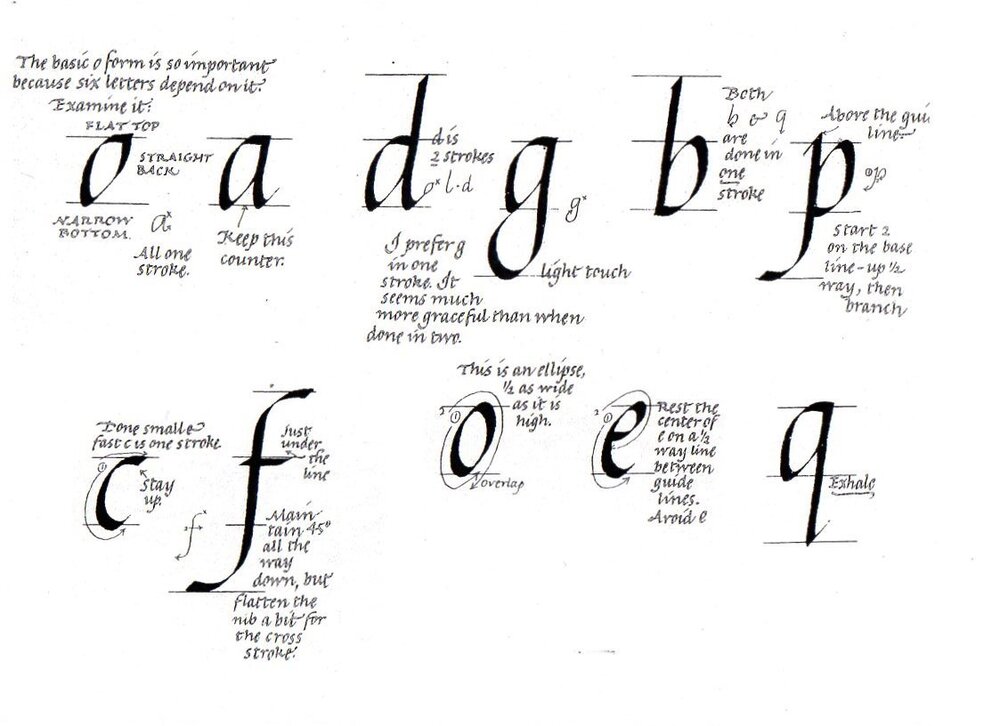 The basic o form is so important
because six letters depend on it.
Examine it:
FLAT TOP
o
STRAIGHT
BACK
NARROW
BOTTOM.
a
All one
stroke.
a
Keep this
counter.
d
d is
2 strokes
o l · d
I prefer g
in one
stroke. It
seems much
more graceful than when
done in two.
g
g
light touch
b
Both
b & q
are
done in
one
stroke
p
Above the gui
line
p
Start 2
on the base
line - up ½
way, then
branch
Done small &
fast c is one stroke.
1
c
Stay
up!
f
Just
under
the
line
2 f
Main
tain 45°
all the
way
down, but
flatten the
nib a bit for
the cross
stroke!
This is an ellipse,
½ as wide
as it is
high.
2 1
o
overlap
2 1
e
Rest the
center of
e on a ½
way line
between
guide
lines.
Avoid e
q
Exhale